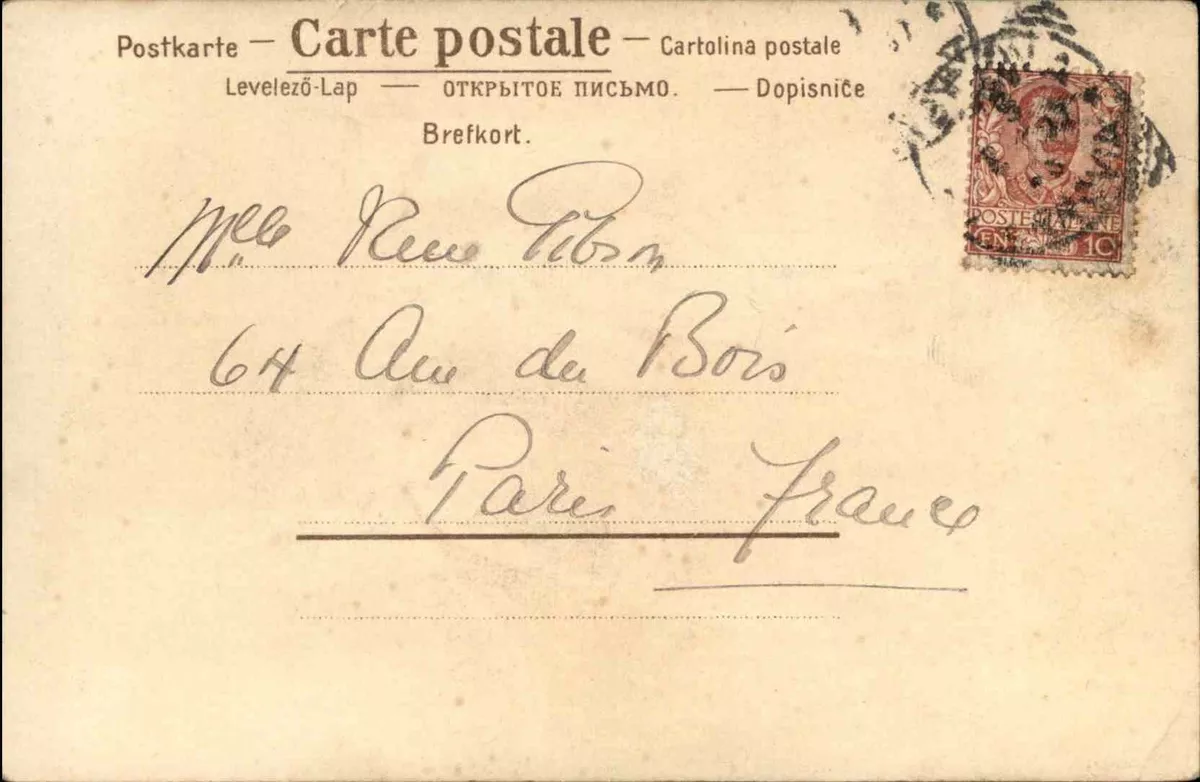 Postkarte — Carte postale — Cartolina postale
Levelező-Lap — ОТКРЫТОЕ ПИСЬМО. — Dopisniče
Brefkort.
Mlle Rene Pibson
64 Ave du Bois
Paris France
POSTE
CEN 10